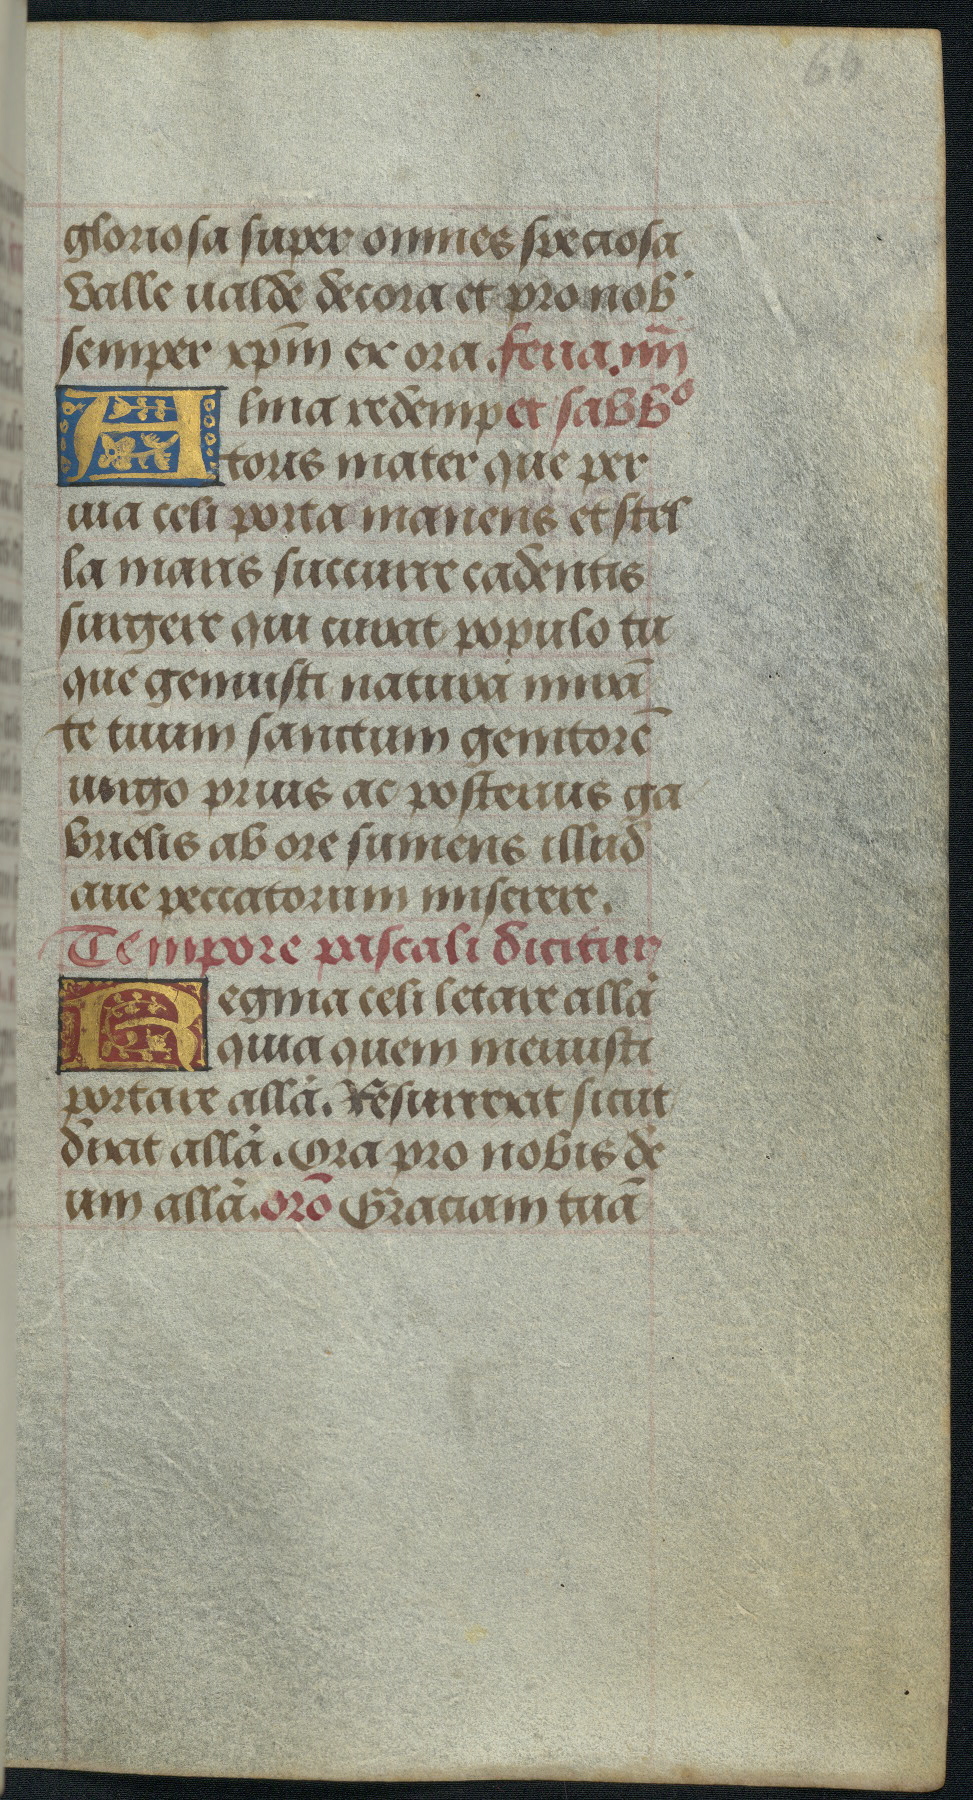 66
gloriosa super omnes speciosa
valle ualde decora et pro nob'
semper xp̄m ex ora. feria. iiij
Alma redemp et sabb°
toris mater que per
uia celi porta manens et stel
la maris succurre cadentis
surgere qui curat populo tu
que genuisti natura mirā
te tuum sanctum genitorē
uirgo prius ac posterius ga
brielis ab ore sumens illud
aue peccatorum miserere.
Tempore pascali dicitur
Regina celi letare allā
quia quem meruisti
portare allā. Resurrexit sicut
dixit allā. Ora pro nobis de
um allā. orō Graciam tuā